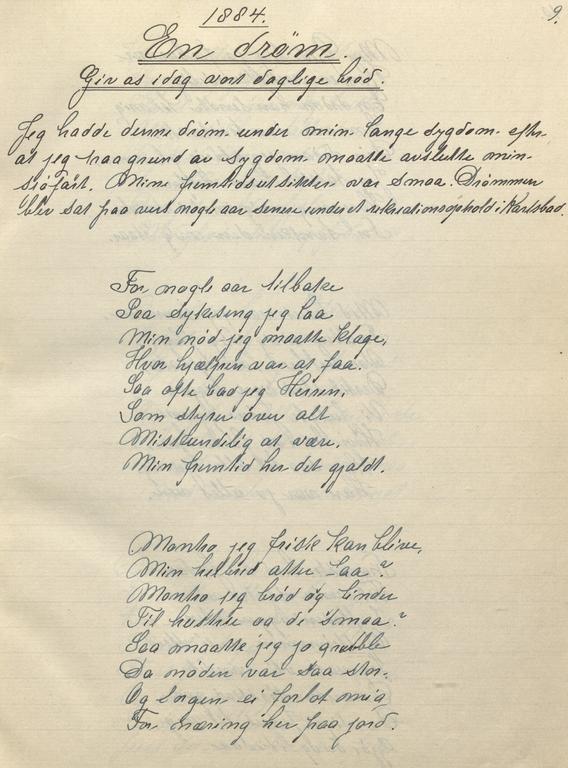 9.
1884.
En dröm.
Giv os idag vort daglige bröd.
Jeg hadde denne dröm under min lange sygdom efter
at jeg paa grund av sygdom maatte avslutte min
sjöfart. Mine fremtidsutsikter var smaa. Drömmen
blev sat paa vers nogle aar senere under et rekreationsophold i Karlsbad.
For nogle aar tilbake
Paa sykeseng jeg laa
Min nöd jeg maatte klage,
Hvor hjælpen var at faa.
Saa ofte bad jeg Herren,
Som styrer över alt
Miskundelig at være,
Min fremtid her det gjaldt.
Montro jeg frisk kan blive,
Min helbred atter faa?
Montro jeg bröd og finder
Til hustru og de smaa?
Saa maatte jeg jo grubble
Da nöden var saa stor.
Og sorgen ei forlot mig
For næring her paa jord.